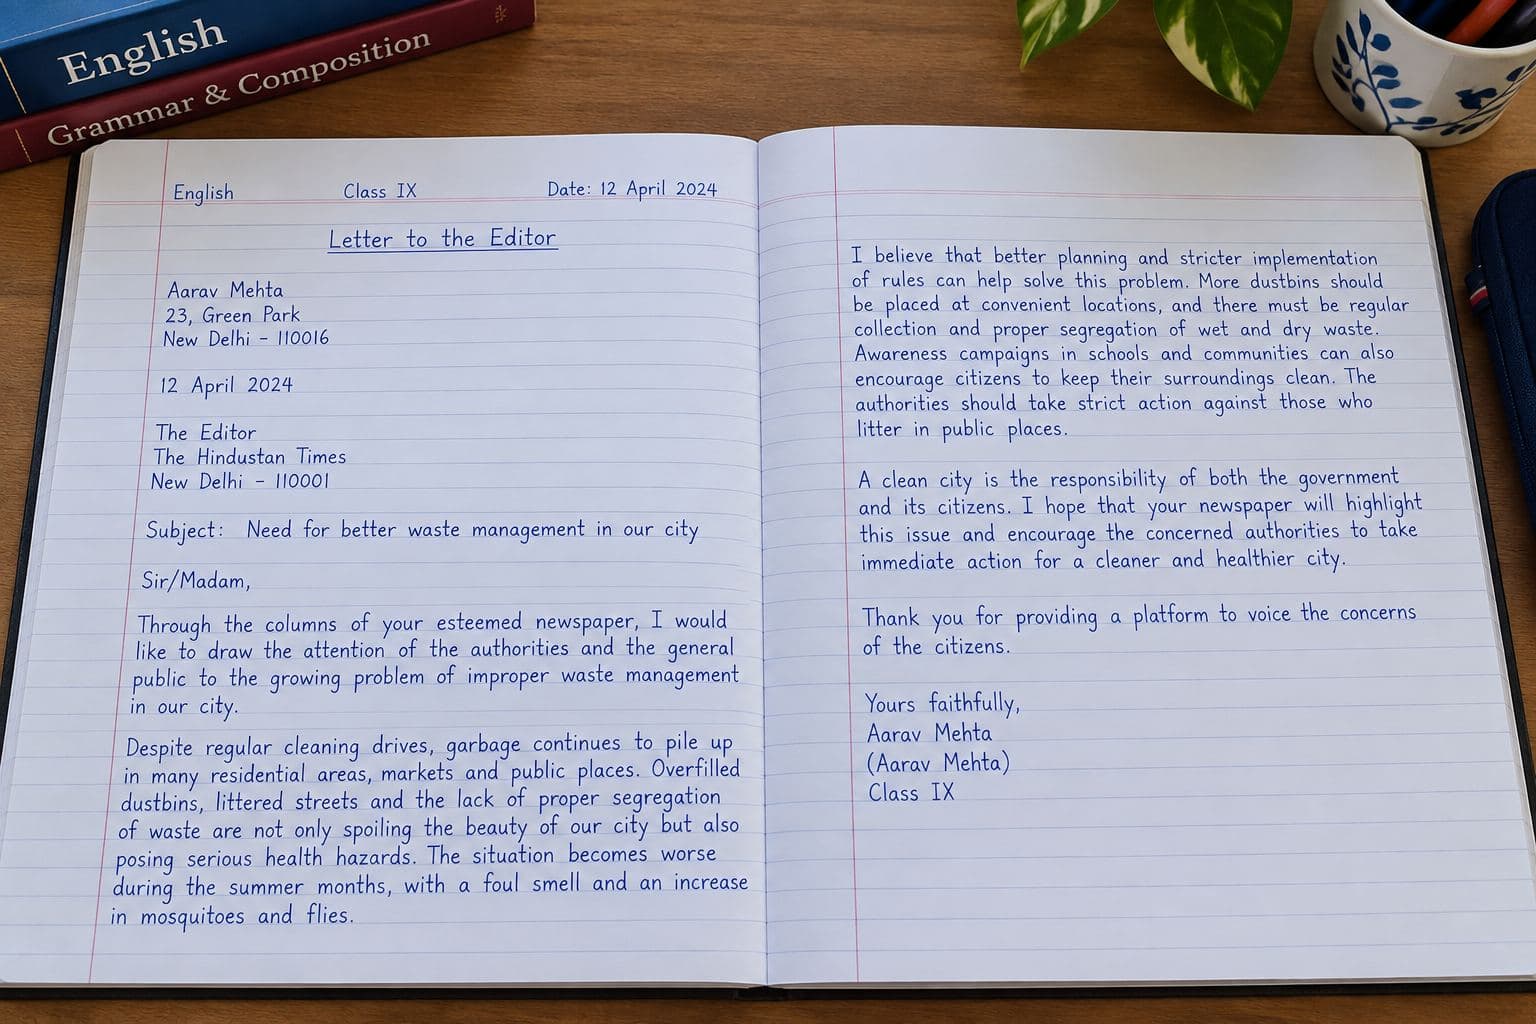 English
Grammar & Composition
English Class IX Date: 12 April 2024
Letter to the Editor
Aarav Mehta
23, Green Park
New Delhi – 110016
12 April 2024
The Editor
The Hindustan Times
New Delhi – 110001
Subject: Need for better waste management in our city
Sir/Madam,
Through the columns of your esteemed newspaper, I would
like to draw the attention of the authorities and the general
public to the growing problem of improper waste management
in our city.
Despite regular cleaning drives, garbage continues to pile up
in many residential areas, markets and public places. Overfilled
dustbins, littered streets and the lack of proper segregation
of waste are not only spoiling the beauty of our city but also
posing serious health hazards. The situation becomes worse
during the summer months, with a foul smell and an increase
in mosquitoes and flies.
I believe that better planning and stricter implementation
of rules can help solve this problem. More dustbins should
be placed at convenient locations, and there must be regular
collection and proper segregation of wet and dry waste.
Awareness campaigns in schools and communities can also
encourage citizens to keep their surroundings clean. The
authorities should take strict action against those who
litter in public places.
A clean city is the responsibility of both the government
and its citizens. I hope that your newspaper will highlight
this issue and encourage the concerned authorities to take
immediate action for a cleaner and healthier city.
Thank you for providing a platform to voice the concerns
of the citizens.
Yours faithfully,
Aarav Mehta
(Aarav Mehta)
Class IX